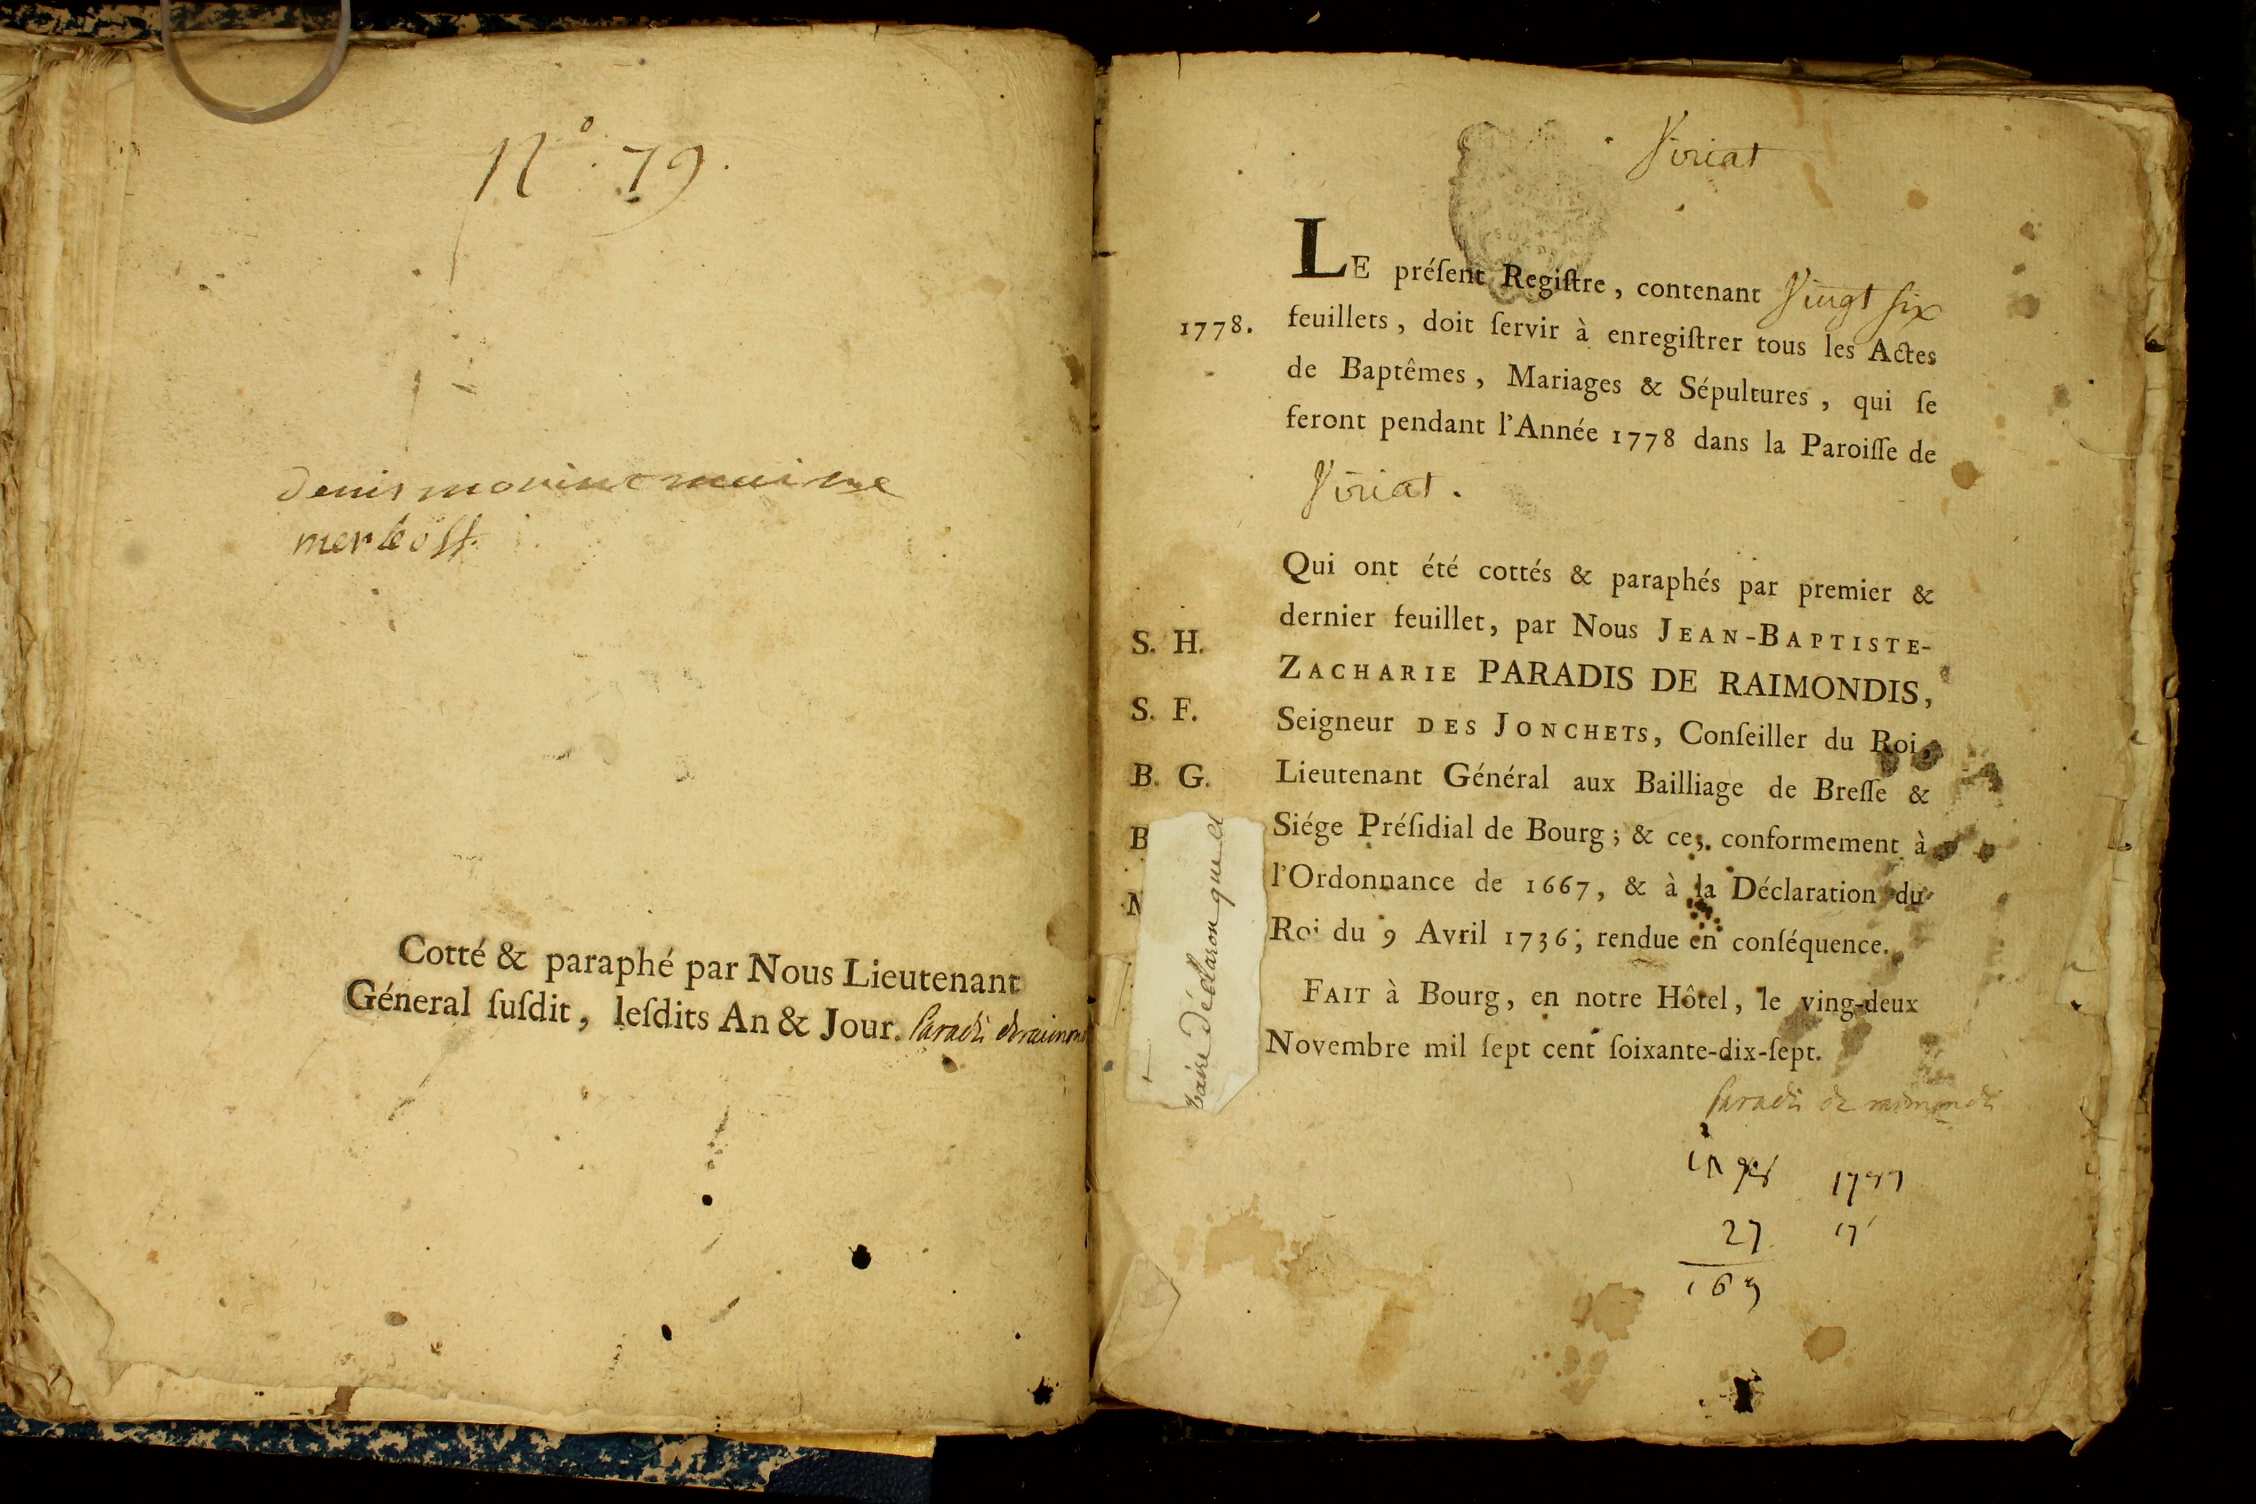 N° 79.
denis
Cotté & paraphé par Nous Lieutenant
Géneral ſuſdit, leſdits An & Jour. Paradis deraimon
Viriat
LE préſent Regiſtre, contenant Vingt ſix
1778. feuillets, doit ſervir à enregiſtrer tous les Actes
de Baptêmes, Mariages & Sépultures, qui ſe
feront pendant l'Année 1778 dans la Paroiſſe de
Viriat.
Qui ont été cottés & paraphés par premier &
dernier feuillet, par Nous JEAN-BAPTISTE-
S. H.
ZACHARIE PARADIS DE RAIMONDIS,
S. F.
Seigneur DES JONCHETS, Conſeiller du Roi,
B. G.
Lieutenant Général aux Bailliage de Breſſe &
B
Siége Préſidial de Bourg; & ce, conformement à
l'Ordonnance de 1667, & à la Déclaration du
Roi du 9 Avril 1736; rendue en conſéquence.
FAIT à Bourg, en notre Hôtel, le ving-deux
Novembre mil ſept cent ſoixante-dix-ſept.
Déclaron que
Paradis de raimondis
27
169